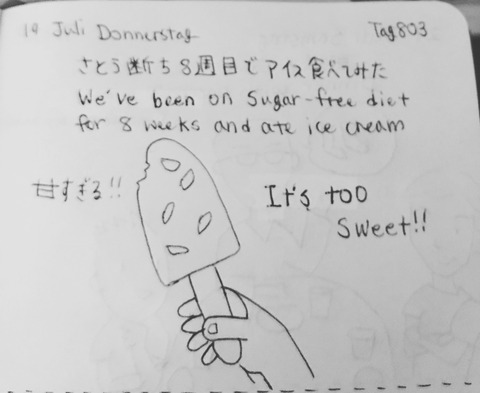 19 Juli Donnerstag
Tag803
さとう断ち8週目でアイス食べてみた
We've been on Sugar-free diet
for 8 weeks and ate ice cream
甘すぎる!!
It's too
sweet!!